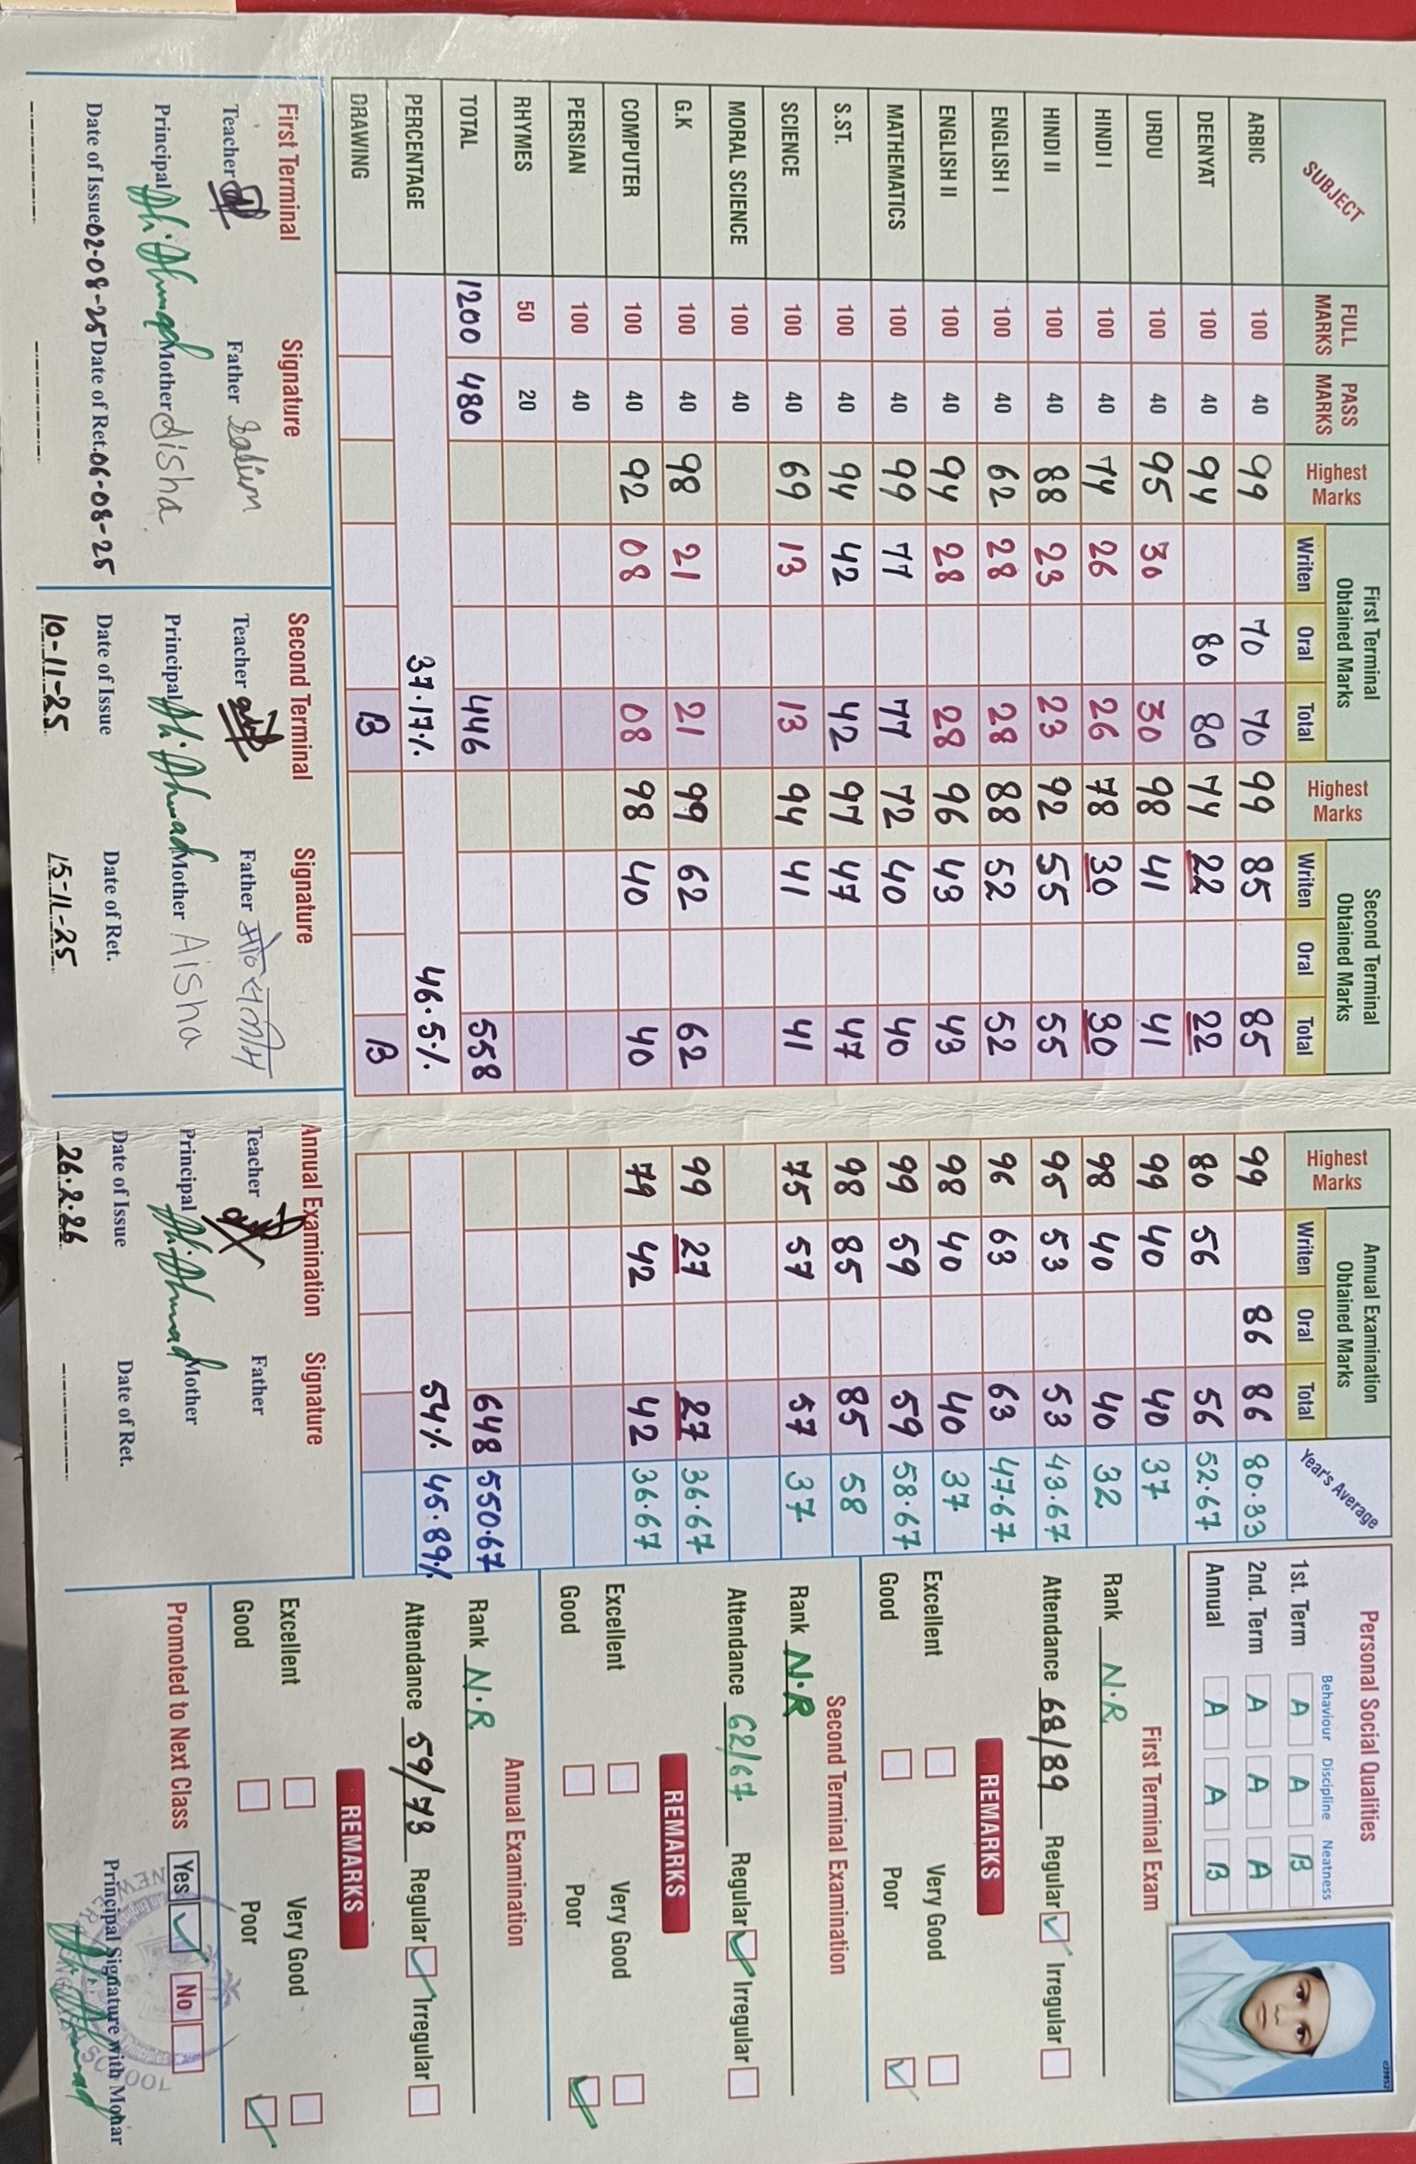 SUBJECT FULL MARKS PASS MARKS Highest Marks First Terminal Obtained Marks Writen Oral Total Highest Marks Second Terminal Obtained Marks Writen Oral Total Highest Marks Annual Examination Obtained Marks Writen Oral Total Year's Average
ARBIC 100 40 99 70 70 99 85 85 99 86 86 80.33
DEENYAT 100 40 94 80 80 74 22 22 80 56 56 52.67
URDU 100 40 95 30 30 98 41 41 99 40 40 37
HINDI I 100 40 74 26 26 78 30 30 98 40 40 32
HINDI II 100 40 88 23 23 92 55 55 95 53 53 43.67
ENGLISH I 100 40 62 28 28 88 52 52 96 63 63 47.67
ENGLISH II 100 40 94 28 28 96 43 43 98 40 40 37
MATHEMATICS 100 40 99 77 77 72 40 40 99 59 59 58.67
S.ST. 100 40 94 42 42 97 47 47 98 85 85 58
SCIENCE 100 40 69 13 13 94 41 41 75 57 57 37
MORAL SCIENCE 100 40
G.K 100 40 98 21 21 99 62 62 99 27 27 36.67
COMPUTER 100 40 92 08 08 98 40 40 79 42 42 36.67
PERSIAN 100 40
RHYMES 50 20
TOTAL 1200 480 446 558 648 550.67
PERCENTAGE 37.17% 46.5% 54% 45.89%
DRAWING B B
First Terminal Signature
Teacher Father Salim
Principal Ah. Ahmad Mother Aisha
Date of Issue 02-08-25 Date of Ret. 06-08-25
Second Terminal Signature
Teacher Father मो० सलीम
Principal Ah. Ahmad Mother Aisha
Date of Issue Date of Ret.
10-11-25 15-11-25
Annual Examination Signature
Teacher Father
Principal Ah. Ahmad Mother
Date of Issue Date of Ret.
26.2.26
Personal Social Qualities
Behaviour Discipline Neatness
1st. Term A A B
2nd. Term A A A
Annual A A B
First Terminal Exam
Rank N.R
Attendance 68/89 Regular Irregular
REMARKS
Excellent Very Good
Good Poor
Second Terminal Examination
Rank N.R
Attendance 62/67 Regular Irregular
REMARKS
Excellent Very Good
Good Poor
Annual Examination
Rank N.R
Attendance 59/73 Regular Irregular
REMARKS
Excellent Very Good
Good Poor
Promoted to Next Class Yes No
Principal Signature with Mohar
Ah. Ahmad